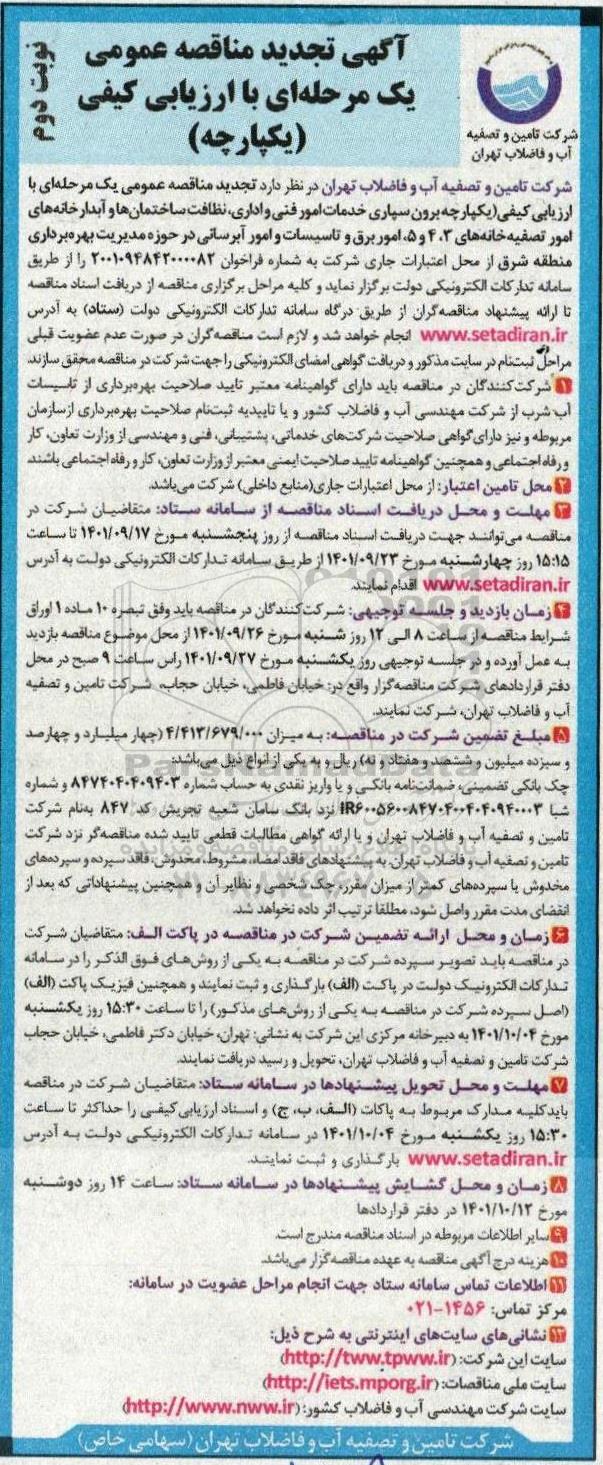 آگهی تجدید مناقصه عمومی
یک مرحله‌ای با ارزیابی کیفی
(یکپارچه)
نوبت دوم
شرکت تامین و تصفیه
آب و فاضلاب تهران
شرکت تامین و تصفیه آب و فاضلاب تهران در نظر دارد تجدید مناقصه عمومی یک مرحله‌ای با
ارزیابی کیفی (یکپارچه برون سپاری خدمات امور فنی و اداری، نظافت ساختمان‌ها و آبدارخانه‌های
امور تصفیه‌خانه‌های ۳، ۴ و ۵، امور برق و تاسیسات و امور آبرسانی در حوزه مدیریت بهره‌برداری
منطقه شرق از محل اعتبارات جاری شرکت به شماره فراخوان ۲۰۰۱۰۹۴۸۴۲۰۰۰۰۸۲ را از طریق
سامانه تدارکات الکترونیکی دولت برگزار نماید و کلیه مراحل برگزاری مناقصه از دریافت اسناد مناقصه
تا ارائه پیشنهاد مناقصه‌گران از طریق درگاه سامانه تدارکات الکترونیکی دولت (ستاد) به آدرس
www.setadiran.ir انجام خواهد شد و لازم است مناقصه‌گران در صورت عدم عضویت قبلی
مراحل ثبت‌نام در سایت مذکور و دریافت گواهی امضای الکترونیکی را جهت شرکت در مناقصه محقق سازند.
۱ شرکت‌کنندگان در مناقصه باید دارای گواهینامه معتبر تایید صلاحیت بهره‌برداری از تاسیسات
آب شرب از شرکت مهندسی آب و فاضلاب کشور و یا تاییدیه ثبت‌نام صلاحیت بهره‌برداری ازسازمان
مربوطه و نیز دارای گواهی صلاحیت شرکت‌های خدماتی، پشتیبانی، فنی و مهندسی از وزارت تعاون، کار
و رفاه اجتماعی و همچنین گواهینامه تایید صلاحیت ایمنی معتبر از وزارت تعاون، کار و رفاه اجتماعی باشند.
۲ محل تامین اعتبار: از محل اعتبارات جاری(منابع داخلی) شرکت می‌باشد.
۳ مهلت و محل دریافت اسناد مناقصه از سامانه ستاد: متقاضیان شرکت در
مناقصه می‌توانند جهت دریافت اسناد مناقصه از روز پنجشنبه مورخ ۱۴۰۱/۰۹/۱۷ تا ساعت
۱۵:۱۵ روز چهارشنبه مورخ ۱۴۰۱/۰۹/۲۳ از طریق سامانه تدارکات الکترونیکی دولت به آدرس
www.setadiran.ir اقدام نمایند.
۴ زمان بازدید و جلسه توجیهی: شرکت‌کنندگان در مناقصه باید وفق تبصره ۱۰ ماده ۱ اوراق
شرایط مناقصه از ساعت ۸ الی ۱۲ روز شنبه مورخ ۱۴۰۱/۰۹/۲۶ از محل موضوع مناقصه بازدید
به عمل آورده و در جلسه توجیهی روز یکشنبه مورخ ۱۴۰۱/۰۹/۲۷ راس ساعت ۹ صبح در محل
دفتر قراردادهای شرکت مناقصه‌گزار واقع در: خیابان فاطمی، خیابان حجاب، شرکت تامین و تصفیه
آب و فاضلاب تهران، شرکت نمایند.
۵ مبلغ تضمین شرکت در مناقصه: به میزان ۴/۴۱۳/۶۷۹/۰۰۰ (چهار میلیارد و چهارصد
و سیزده میلیون و ششصد و هفتاد و نه) ریال و به یکی از انواع ذیل می‌باشد:
چک بانکی تضمینی، ضمانت‌نامه بانکی و یا واریز نقدی به حساب شماره ۸۴۷۴۰۴۰۴۰۹۴۰۳ و شماره
شبا IR۶۰۰۵۶۰۰۸۴۷۰۴۰۰۴۰۴۰۹۴۰۰۳ نزد بانک سامان شعبه تجریش کد ۸۴۷ به‌نام شرکت
تامین و تصفیه آب و فاضلاب تهران و یا ارائه گواهی مطالبات قطعی تایید شده مناقصه‌گر نزد شرکت
تامین و تصفیه آب و فاضلاب تهران. به پیشنهادهای فاقد امضاء، مشروط، مخدوش، فاقد سپرده و سپرده‌های
مخدوش یا سپرده‌های کمتر از میزان مقرر، چک شخصی و نظایر آن و همچنین پیشنهاداتی که بعد از
انقضای مدت مقرر واصل شود، مطلقا ترتیب اثر داده نخواهد شد.
۶ زمان و محل ارائه تضمین شرکت در مناقصه در پاکت الف: متقاضیان شرکت
در مناقصه باید تصویر سپرده شرکت در مناقصه به یکی از روش‌های فوق الذکر را در سامانه
تدارکات الکترونیک دولت در پاکت (الف) بارگذاری و ثبت نمایند و همچنین فیزیک پاکت (الف)
(اصل سپرده شرکت در مناقصه به یکی از روش‌های مذکور) را تا ساعت ۱۵:۳۰ روز یکشنبه
مورخ ۱۴۰۱/۱۰/۰۴ به دبیرخانه مرکزی این شرکت به نشانی: تهران، خیابان دکتر فاطمی، خیابان حجاب
شرکت تامین و تصفیه آب و فاضلاب تهران، تحویل و رسید دریافت نمایند.
۷ مهلت و محل تحویل پیشنهادها در سامانه ستاد: متقاضیان شرکت در مناقصه
باید کلیه مدارک مربوط به پاکات (الف، ب، ج) و اسناد ارزیابی کیفی را حداکثر تا ساعت
۱۵:۳۰ روز یکشنبه مورخ ۱۴۰۱/۱۰/۰۴ در سامانه تدارکات الکترونیکی دولت به آدرس
www.setadiran.ir بارگذاری و ثبت نمایند.
۸ زمان و محل گشایش پیشنهادها در سامانه ستاد: ساعت ۱۴ روز دوشنبه
مورخ ۱۴۰۱/۱۰/۱۲ در دفتر قراردادها
۹ سایر اطلاعات مربوطه در اسناد مناقصه مندرج است.
۱۰ هزینه درج آگهی مناقصه به عهده مناقصه‌گزار می‌باشد.
۱۱ اطلاعات تماس سامانه ستاد جهت انجام مراحل عضویت در سامانه:
مرکز تماس: ۱۴۵۶-۰۲۱
۱۲ نشانی‌های سایت‌های اینترنتی به شرح ذیل:
سایت این شرکت: (http://tww.tpww.ir)
سایت ملی مناقصات: (http://iets.mporg.ir)
سایت شرکت مهندسی آب و فاضلاب کشور: (http://www.nww.ir)
شرکت تامین و تصفیه آب و فاضلاب تهران (سهامی خاص)